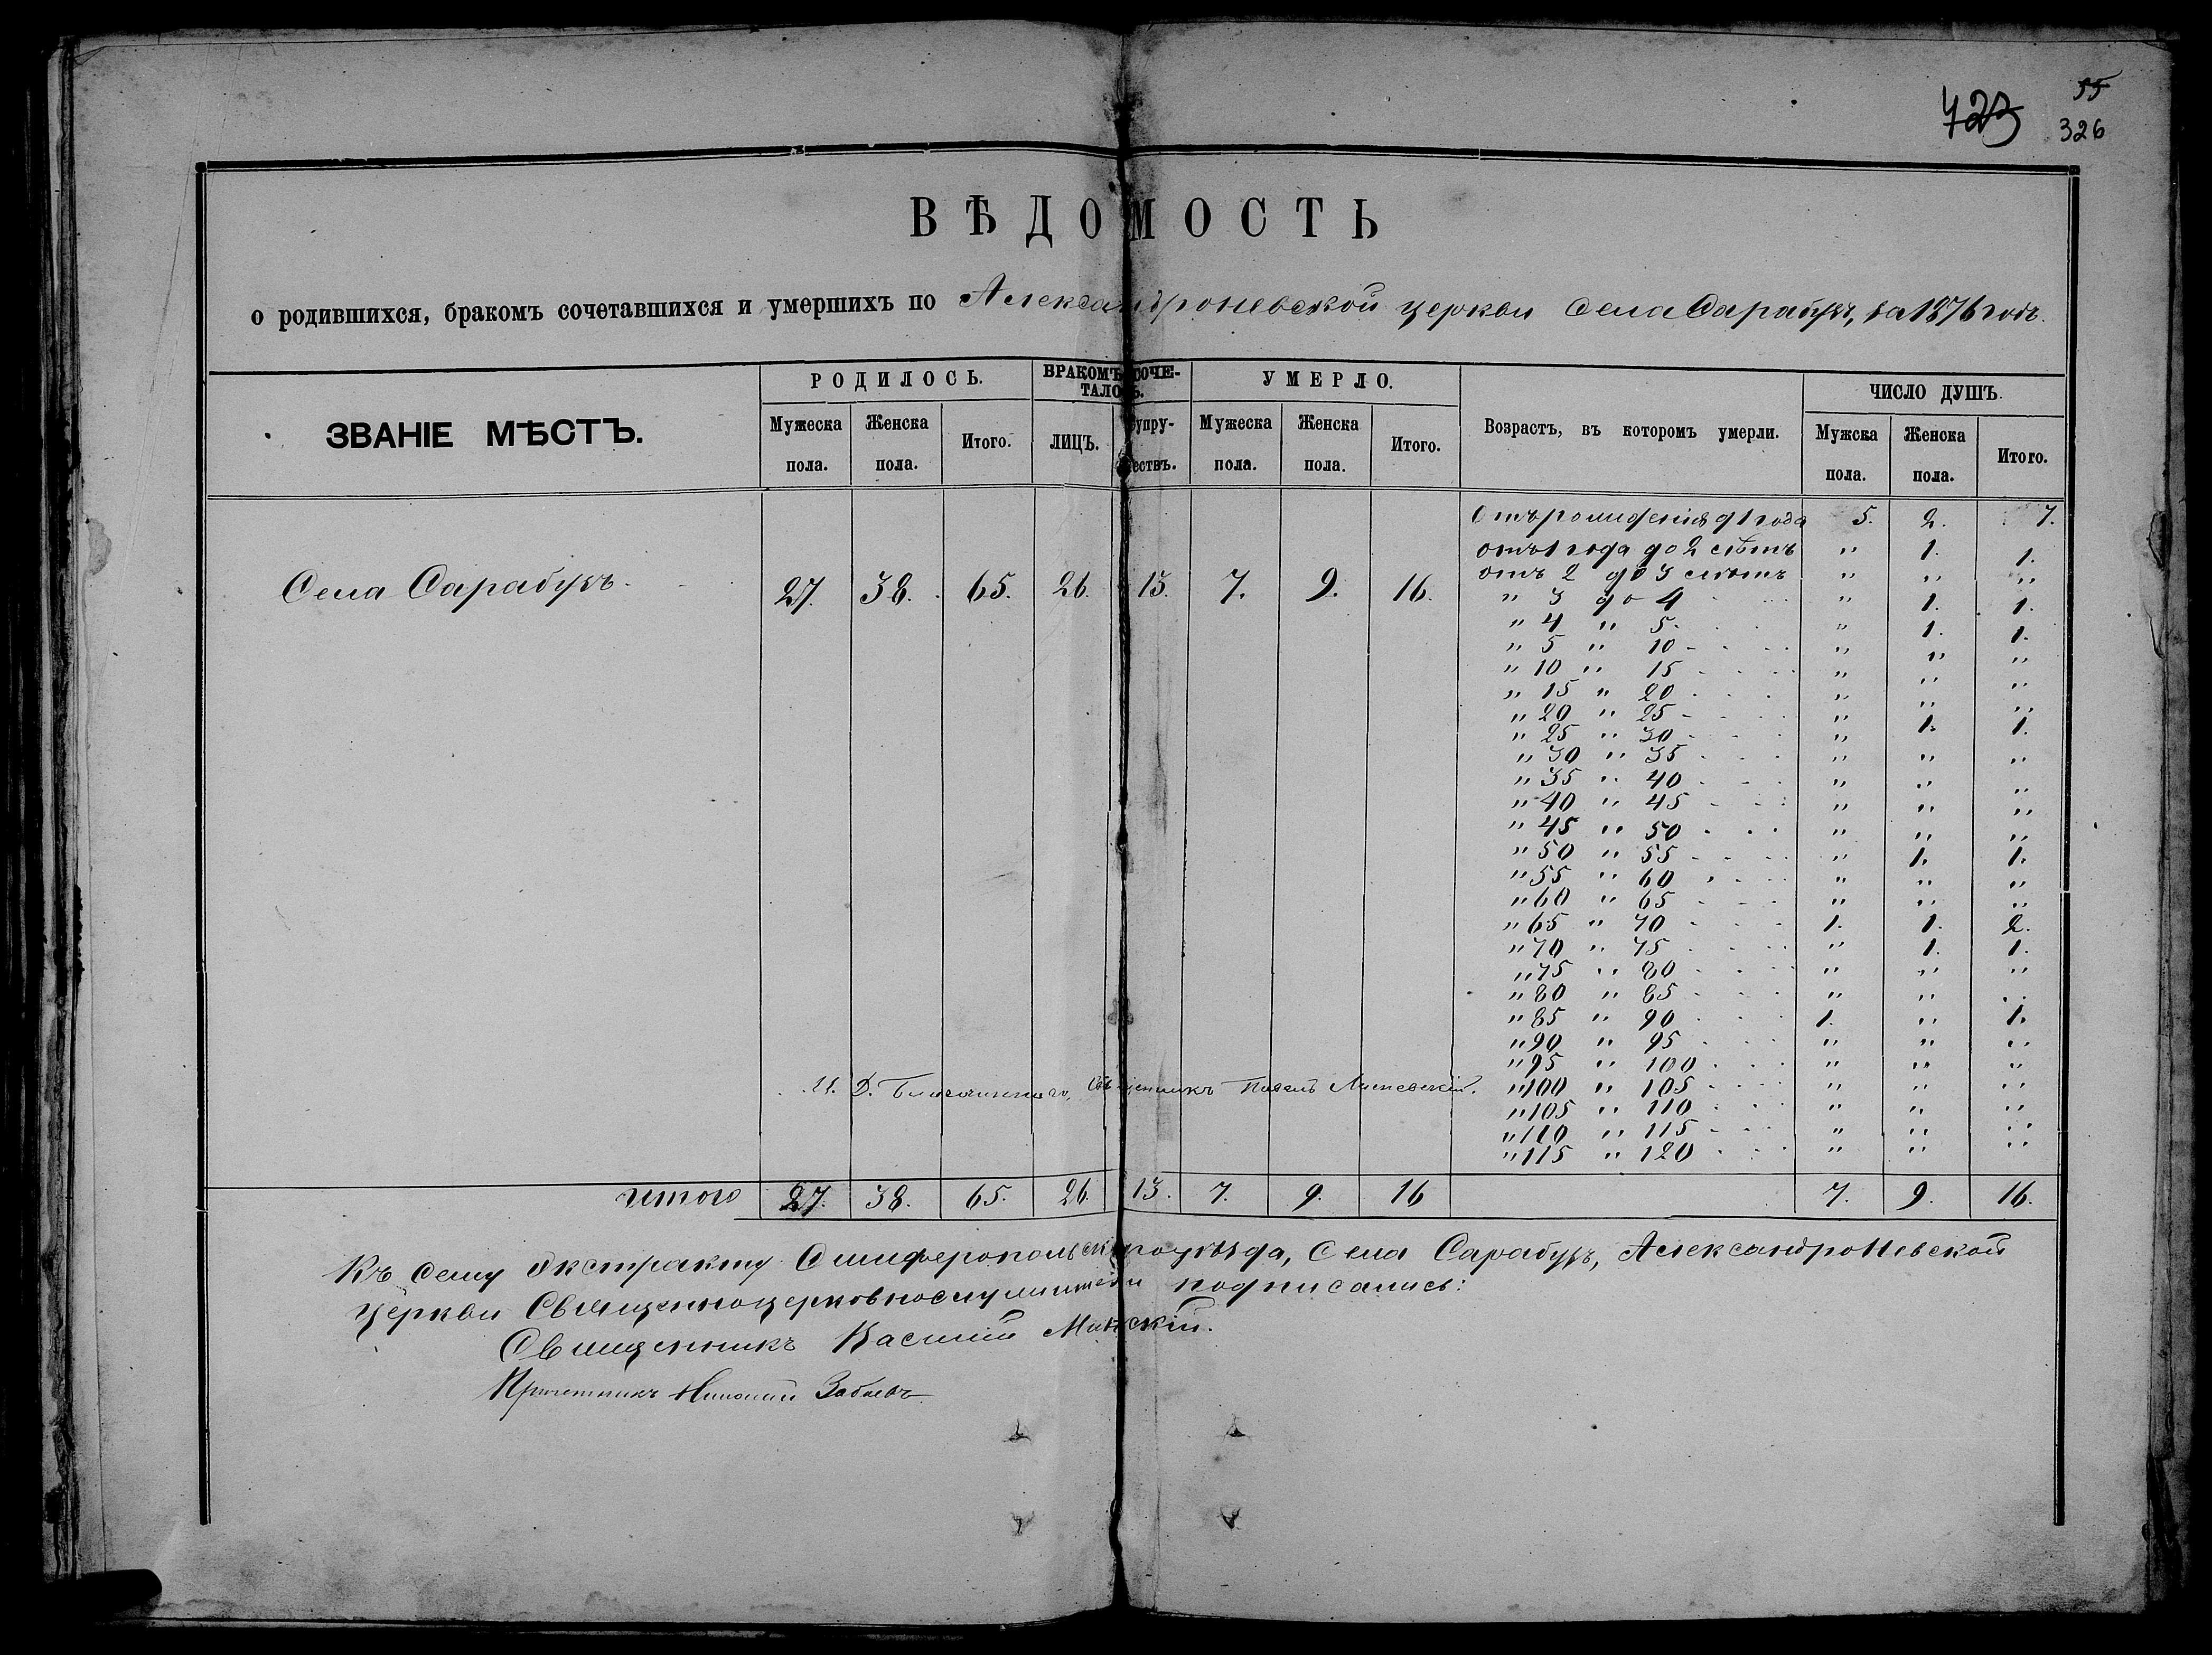 55
423
326
ВѢДОМОСТЬ
о родившихся, бракомъ сочетавшихся и умершихъ по Александроневской церкви села Сарабузъ, за 1876 годъ.
ЗВАНІЕ МѢСТЪ. РОДИЛОСЬ. БРАКОМЪ СОЧЕ- УМЕРЛО. Возрастъ, въ которомъ умерли. ЧИСЛО ДУШЪ.
ТАЛОСЬ.
Мужеска Женска Итого. ЛИЦЪ. Супру- Мужеска Женска Итого. Мужска Женска Итого.
пола. пола. жествъ. пола. пола. пола. пола.
Отъ рожденія д 1 года 5. 2. 7.
отъ 1 года до 2 лѣтъ " 1. 1.
отъ 2 до 3 лѣтъ " " "
Села Сарабузъ 27. 38. 65. 26. 13. 7. 9. 16.
" 3 до 4 " 1. 1.
" 4 " 5 " 1. 1.
" 5 " 10 " " "
" 10 " 15 " " "
" 15 " 20 " " "
" 20 " 25 " 1. 1.
" 25 " 30 " " "
" 30 " 35 " " "
" 35 " 40 " " "
" 40 " 45 " " "
" 45 " 50 " " "
" 50 " 55 " 1. 1.
" 55 " 60 " " "
" 60 " 65 " " "
" 65 " 70 1. 1. 2.
" 70 " 75 " 1. 1.
" 75 " 80 " " "
" 80 " 85 " " "
" 85 " 90 1. " 1.
" 90 " 95 " " "
" 95 " 100 " " "
И. Д. Благочиннаго, Священникъ Павелъ
" 100 " 105 " " "
" 105 " 110 " " "
" 110 " 115 " " "
" 115 " 120 " " "
итого 27. 38. 65. 26. 13. 7. 9. 16 7. 9. 16.
Къ сему экстракту Симферопольскаго уѣзда, Села Сарабузъ, АлександроНевской
церкви Священноцерковнослужители подписались:
Священникъ Василій Минскій.
Причетникъ Николай